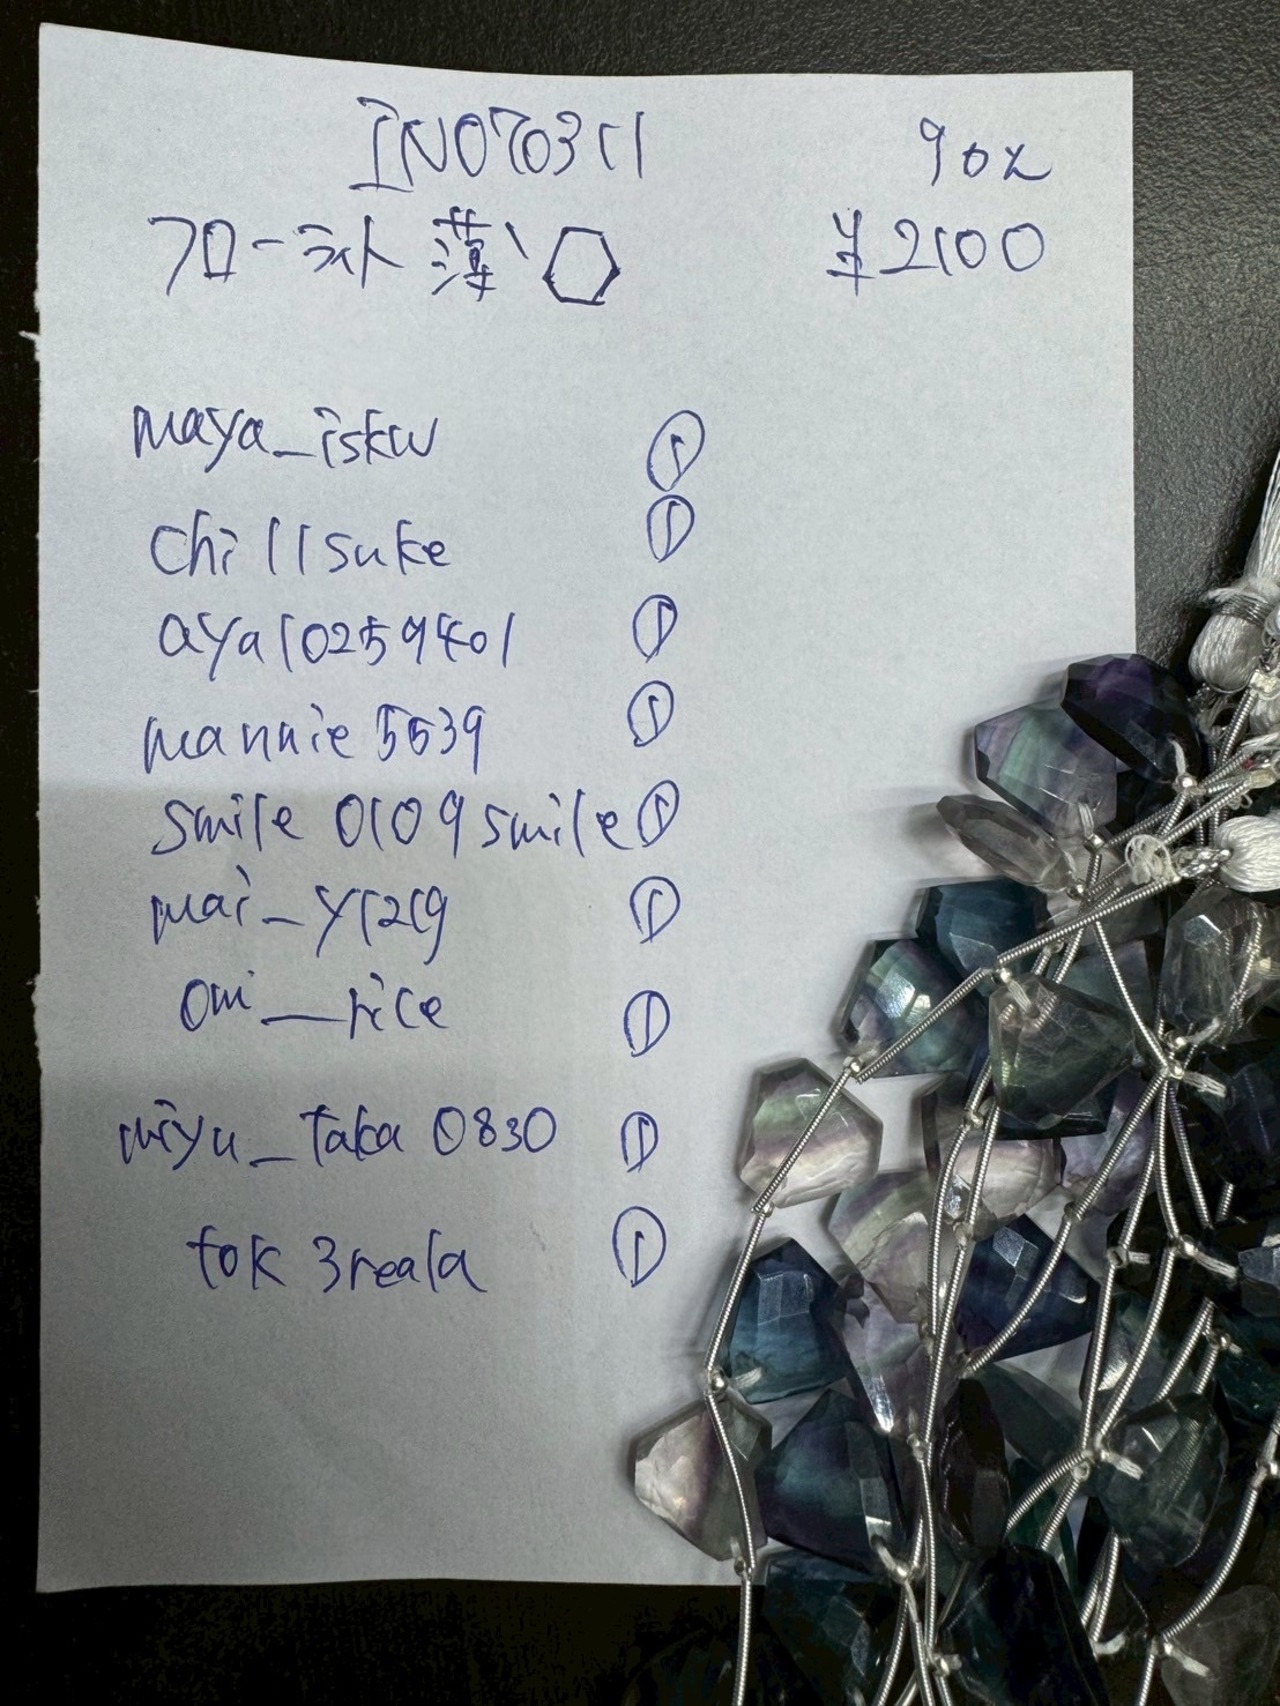 IN070311 90x
フローライト 薄い ⬡ ¥2100
maya_iskw ①
chillsuke ①
aya10259401 ①
mannie5539 ①
smile0109smile ①
mai_y1219 ①
omi__rice ①
miyu_taka0830 ①
tok3reala ①